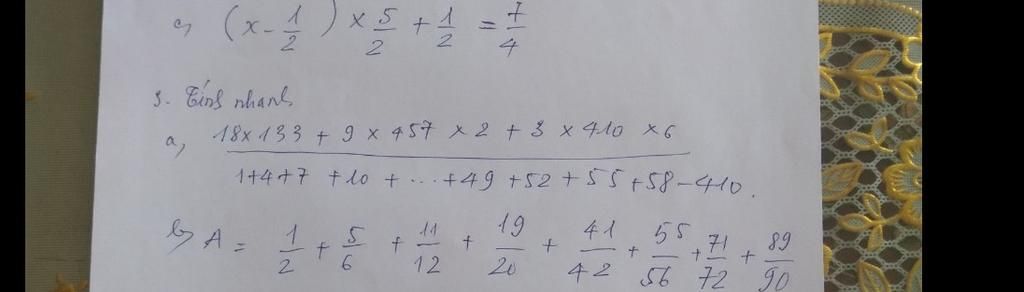 c, (x - 1/2) × 5/2 + 1/2 = 7/4
3. Tính nhanh
a, (18 × 133 + 9 × 457 × 2 + 3 × 410 × 6) / (1 + 4 + 7 + 10 + ... + 49 + 52 + 55 + 58 - 410.)
b, A = 1/2 + 5/6 + 11/12 + 19/20 + 41/42 + 55/56 + 71/72 + 89/90